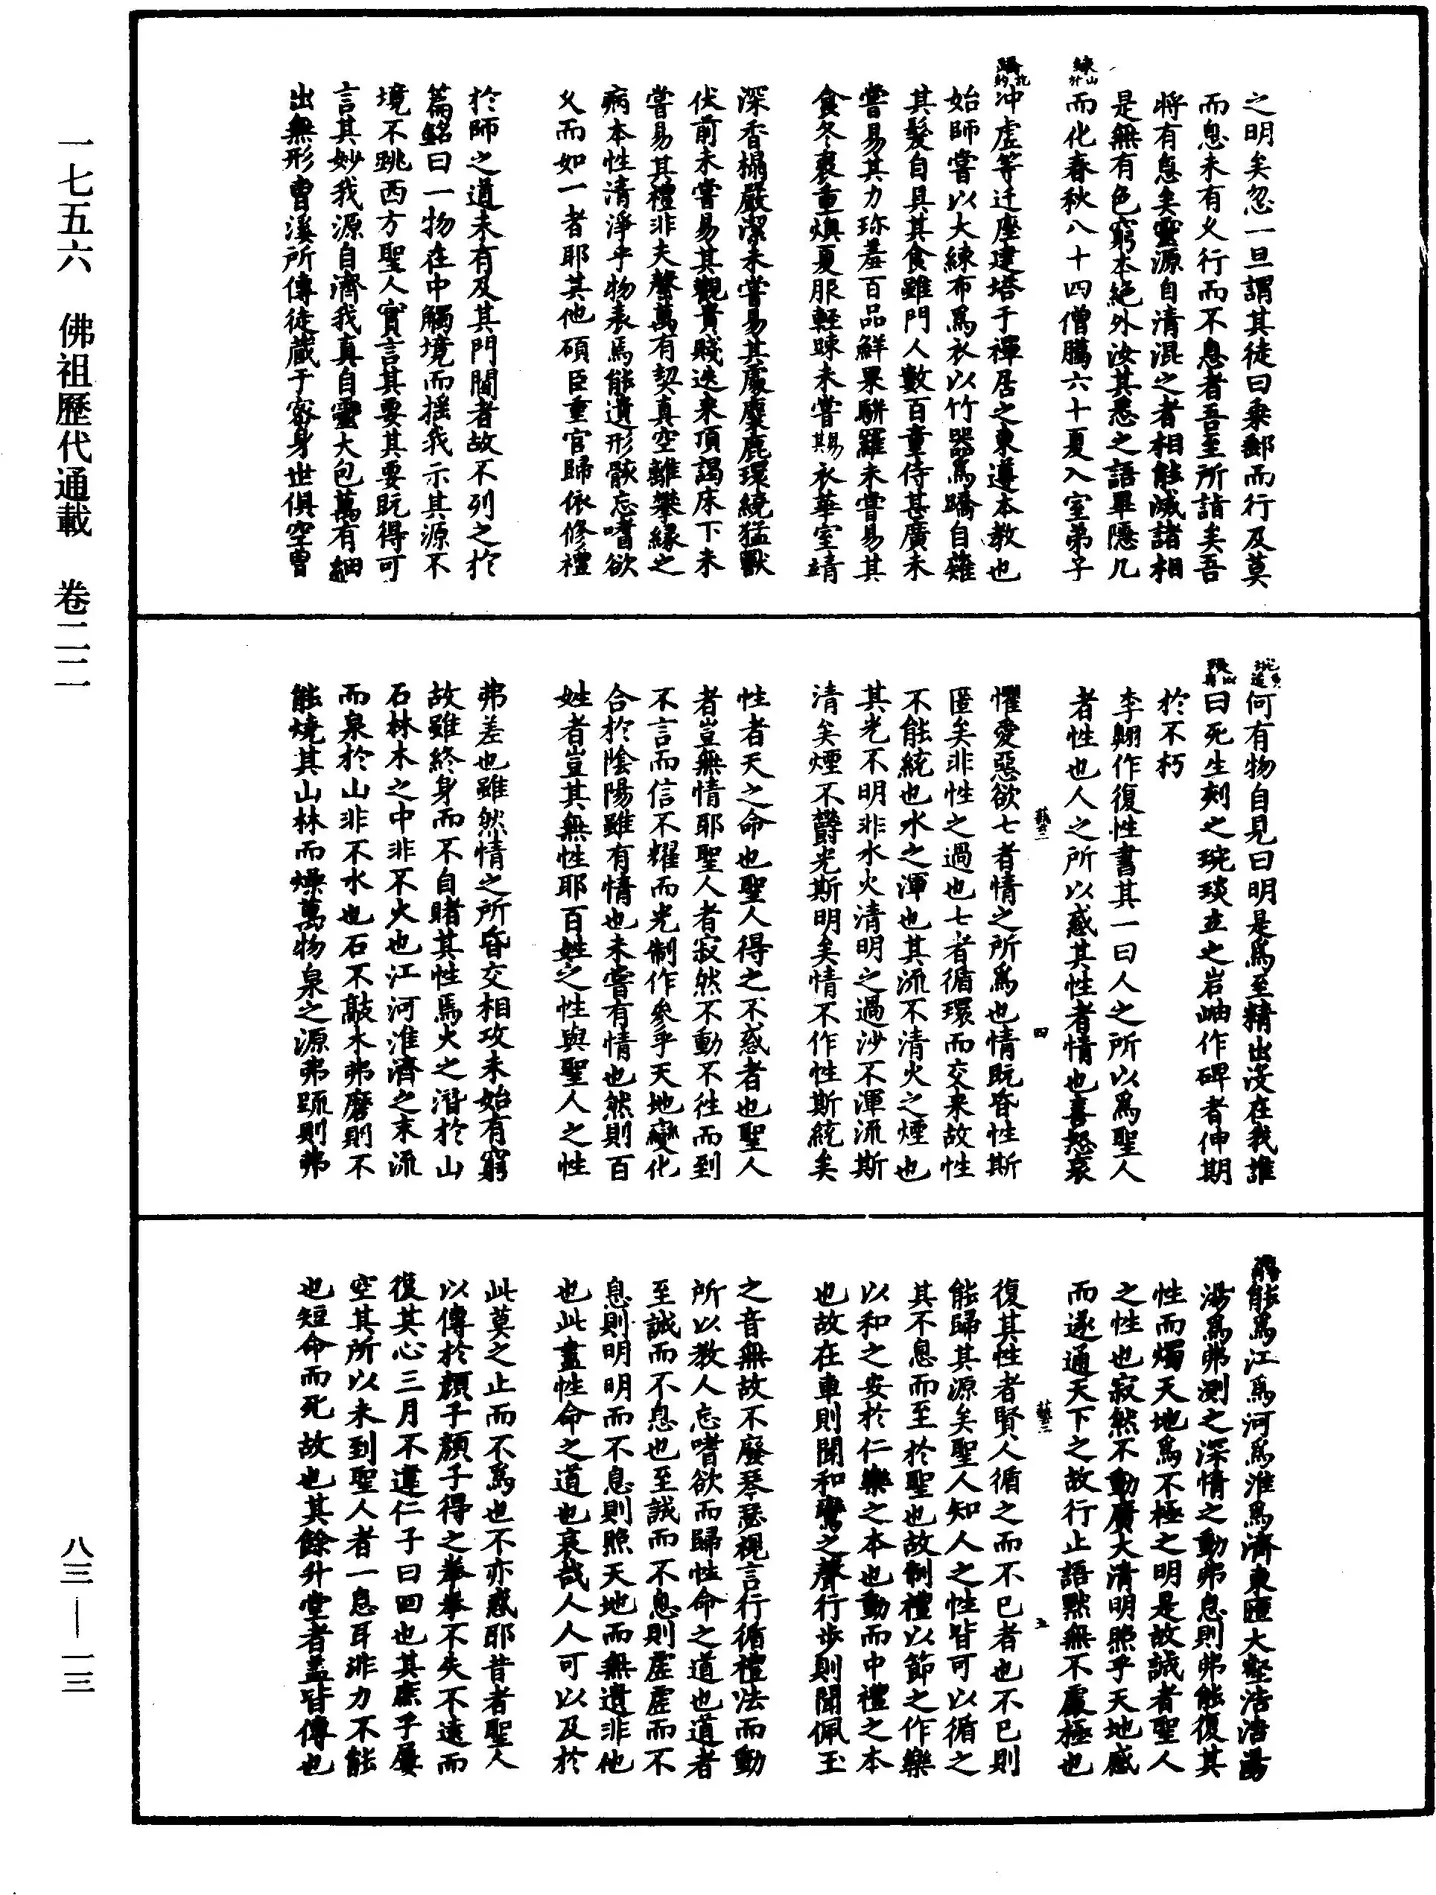 之明矣忽一旦謂其徒曰乘郵而行及莫
而息未有乂行而不息者吾至所詣矣吾
將有息矣靈源自清混之者相能滅諸相
是無有色窮本絕外汝其悉之語畢隱几
而化春秋八十四僧臈六十夏入室弟子
冲虛等迁座建塔于禪居之東遵本教也
始師嘗以大練布爲衣以竹器爲蹻自薙
其髮自具其食雖門人數百童侍甚廣未
嘗易其力珎羞百品鮮果駢羅未嘗易其
食冬裘重燠夏服輕踈未嘗賜衣華室靖
深香榻嚴潔未嘗易其處麋鹿環繞猛獸
伏前未嘗易其觀貴賤迭來頂謁床下未
嘗易其禮非夫罄萬有契真空離攀緣之
病本性清淨乎物表焉能遺形骸忘嗜欲
乂而如一者耶其他碩臣重官歸依修禮
於師之道未有及其門閫者故不列之於
篇銘曰一物在中觸境而揺我示其源不
境不跳西方聖人實言其要其要旣得可
言其妙我源自濟我真自靈大包萬有細
出無形曹溪所傳徒蔵于密身世俱空曹
何有物自見曰明是爲至精出没在我誰
曰死生刻之琬琰立之岩岫作碑者伸期
於不朽
李翺作復性書其一曰人之所以爲聖人
者性也人之所以惑其性者情也喜怒哀
懼愛惡欲七者情之所爲也情旣昏性斯
匿矣非性之過也七者循環而交来故性
不能統也水之渾也其流不清火之煙也
其光不明非水火清明之過沙不渾流斯
清矣煙不欝光斯明矣情不作性斯統矣
性者天之命也聖人得之不惑者也聖人
者豈無情耶聖人者寂然不動不徃而到
不言而信不耀而光制作參乎天地變化
合於陰陽雖有情也未嘗有情也然則百
姓者豈其無性耶百姓之性與聖人之性
弗差也雖然情之所昏交相攻未始有窮
故雖終身而不自睹其性焉火之潛於山
石林木之中非不火也江河淮濟之未流
而泉於山非不水也石不敲木弗磨則不
能燒其山林而燥萬物泉之源弗䟽則弗
能爲江爲河爲淮爲濟東匯大壑浩浩蕩
蕩爲弗測之深情之動弗息則弗能復其
性而燭天地爲不極之明是故誠者聖人
之性也寂然不動廣大清明照乎天地感
而遂通天下之故行止語黙無不處極也
復其性者賢人循之而不已者也不已則
能歸其源矣聖人知人之性皆可以循之
其不息而至於聖也故制禮以節之作樂
以和之安於仁樂之本也動而中禮之本
也故在車則聞和鸞之聲行步則聞佩玉
之音無故不廢琴瑟視言行循禮法而動
所以教人忘嗜欲而歸性命之道也道者
至誠而不息也至誠而不息則虛虛而不
息則明明而不息則照天地而無遺非他
也此盡性命之道也哀哉人人可以及於
此莫之止而不爲也不亦惑耶昔者聖人
以傳於顔子顔子得之拳拳不失不遠而
復其心三月不違仁子曰回也其庶乎屢
空其所以未到聖人者一息耳非力不能
也短命而死故也其餘升堂者盖皆傳也
四
五
一七五六　佛祖歷代通載　卷二二
八三—一三